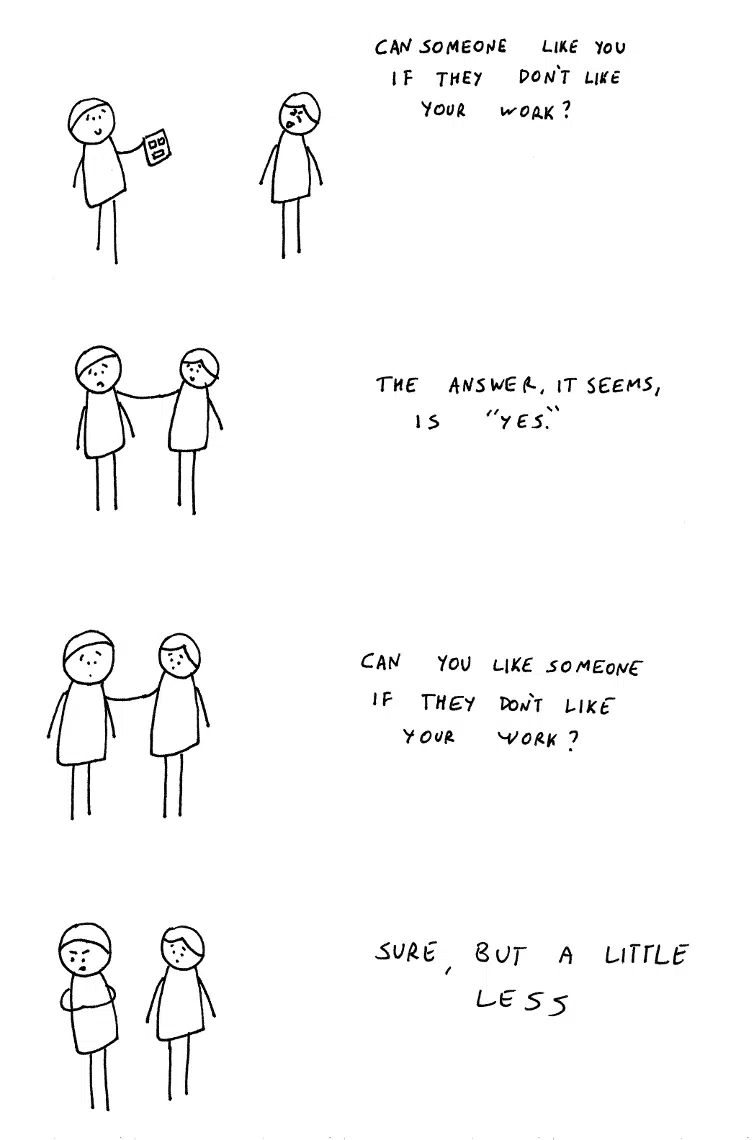 CAN SOMEONE LIKE YOU
IF THEY DON'T LIKE
YOUR WORK?
THE ANSWER, IT SEEMS,
IS "YES."
CAN YOU LIKE SOMEONE
IF THEY DON'T LIKE
YOUR WORK?
SURE, BUT A LITTLE
LESS